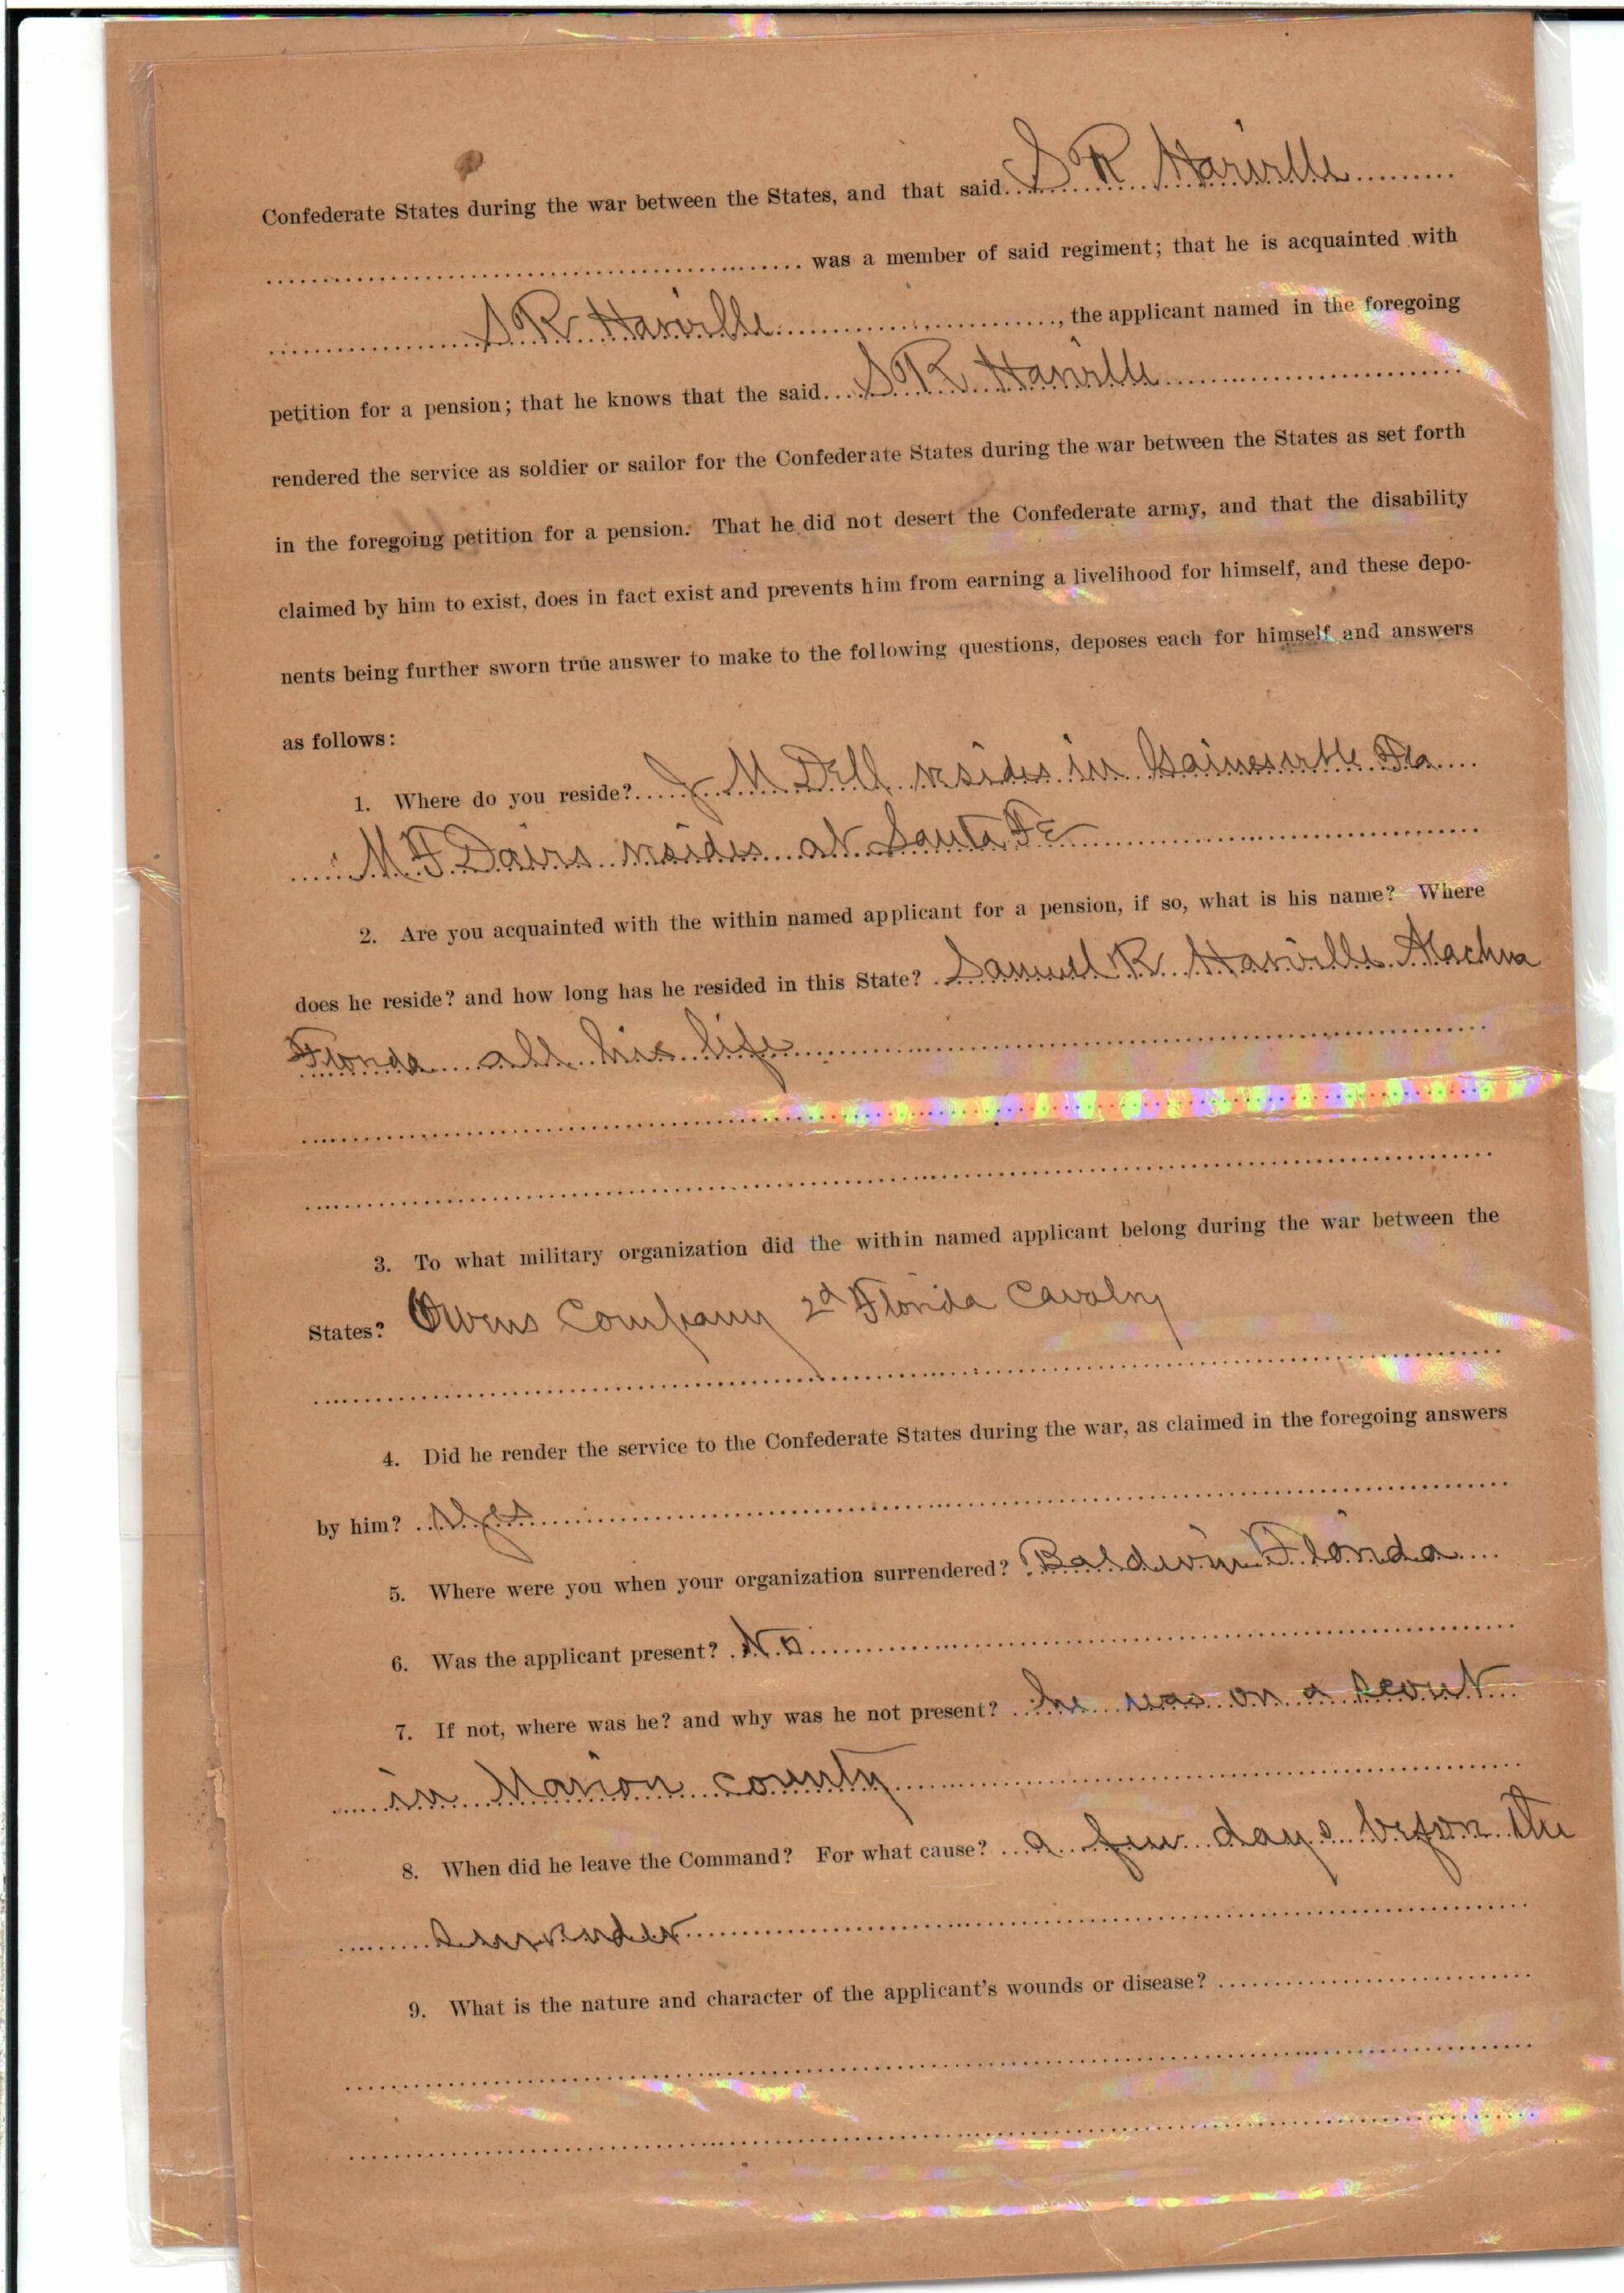 Confederate States during the war between the States, and that said S R Harville
was a member of said regiment; that he is acquainted with
S R Harville, the applicant named in the foregoing
petition for a pension; that he knows that the said S R Harville
rendered the service as soldier or sailor for the Confederate States during the war between the States as set forth
in the foregoing petition for a pension. That he did not desert the Confederate army, and that the disability
claimed by him to exist, does in fact exist and prevents him from earning a livelihood for himself, and these depo-
nents being further sworn true answer to make to the following questions, deposes each for himself and answers
as follows:
1. Where do you reside? J M Dell resides in Gainesville Fla
M F Davis resides at Santa Fe
2. Are you acquainted with the within named applicant for a pension, if so, what is his name? Where
does he reside? and how long has he resided in this State? Samuel R Harville Alachua
Florida all his life
3. To what military organization did the within named applicant belong during the war between the
States? Owens Company 2d Florida Cavalry
4. Did he render the service to the Confederate States during the war, as claimed in the foregoing answers
by him? Yes
5. Where were you when your organization surrendered? Baldwin Florida
6. Was the applicant present? No
7. If not, where was he? and why was he not present? he was on a scout
in Marion county
8. When did he leave the Command? For what cause? a few days before the
surrender
9. What is the nature and character of the applicant's wounds or disease?